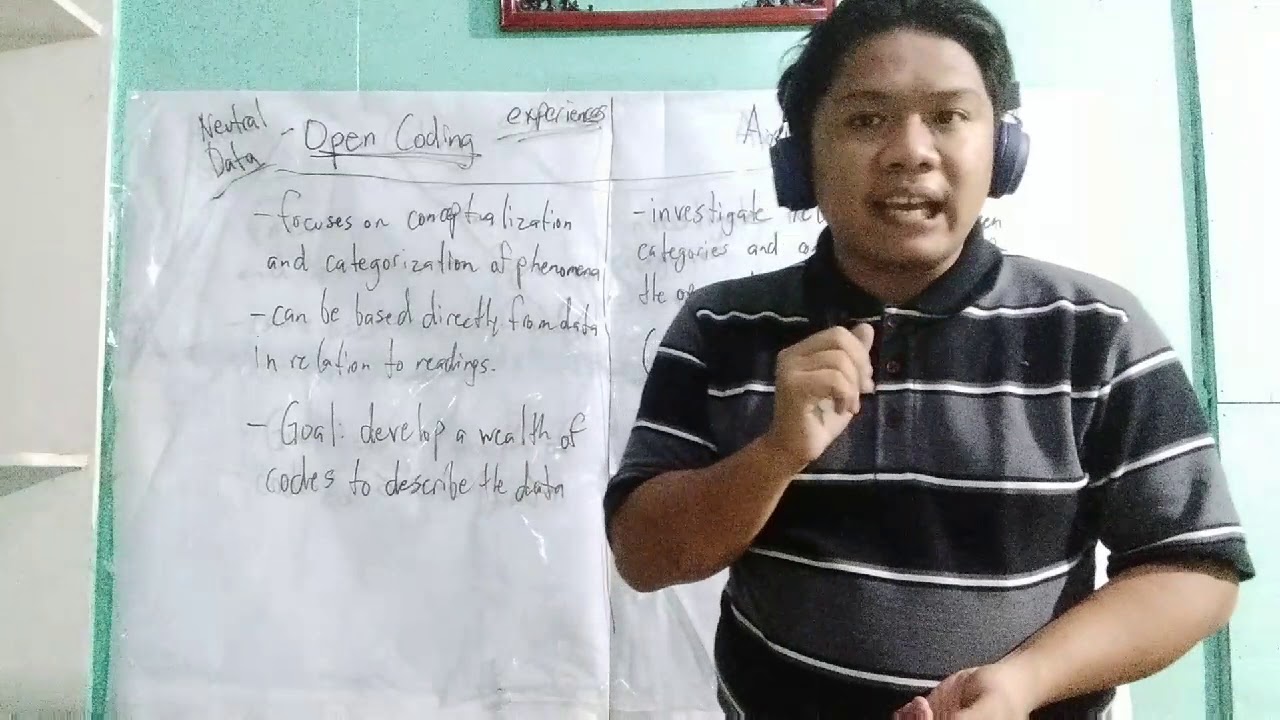 Neutral
Data
- Open Coding
experiences
- focuses on conceptualization
and categorization of phenomena
- can be based directly from data
in relation to readings.
- Goal: develop a wealth of
codes to describe the data
- investigate
categories and
the